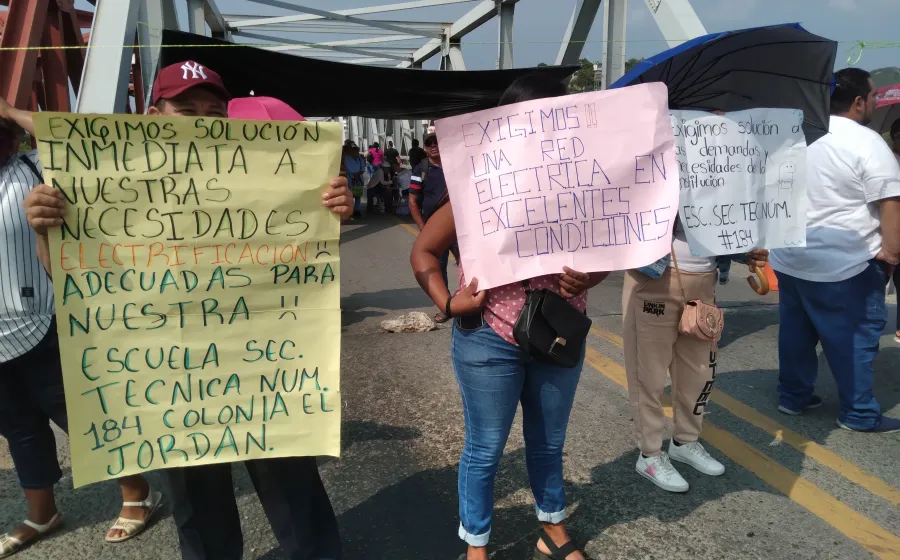 NY
EXIGIMOS SOLUCIÓN
INMEDIATA A
NUESTRAS
NECESIDADES
ELECTRIFICACIÓN
ADECUADAS PARA
NUESTRA !!
ESCUELA SEC.
TECNICA NUM.
184 COLONIA EL
JORDAN.
EXIGIMOS!!
UNA RED
ELECTRICA EN
EXCELENTES
CONDICIONES
solución a
demandas y
de la
ESC. SEC TEC NUM.
#184
LINKIN
PARK